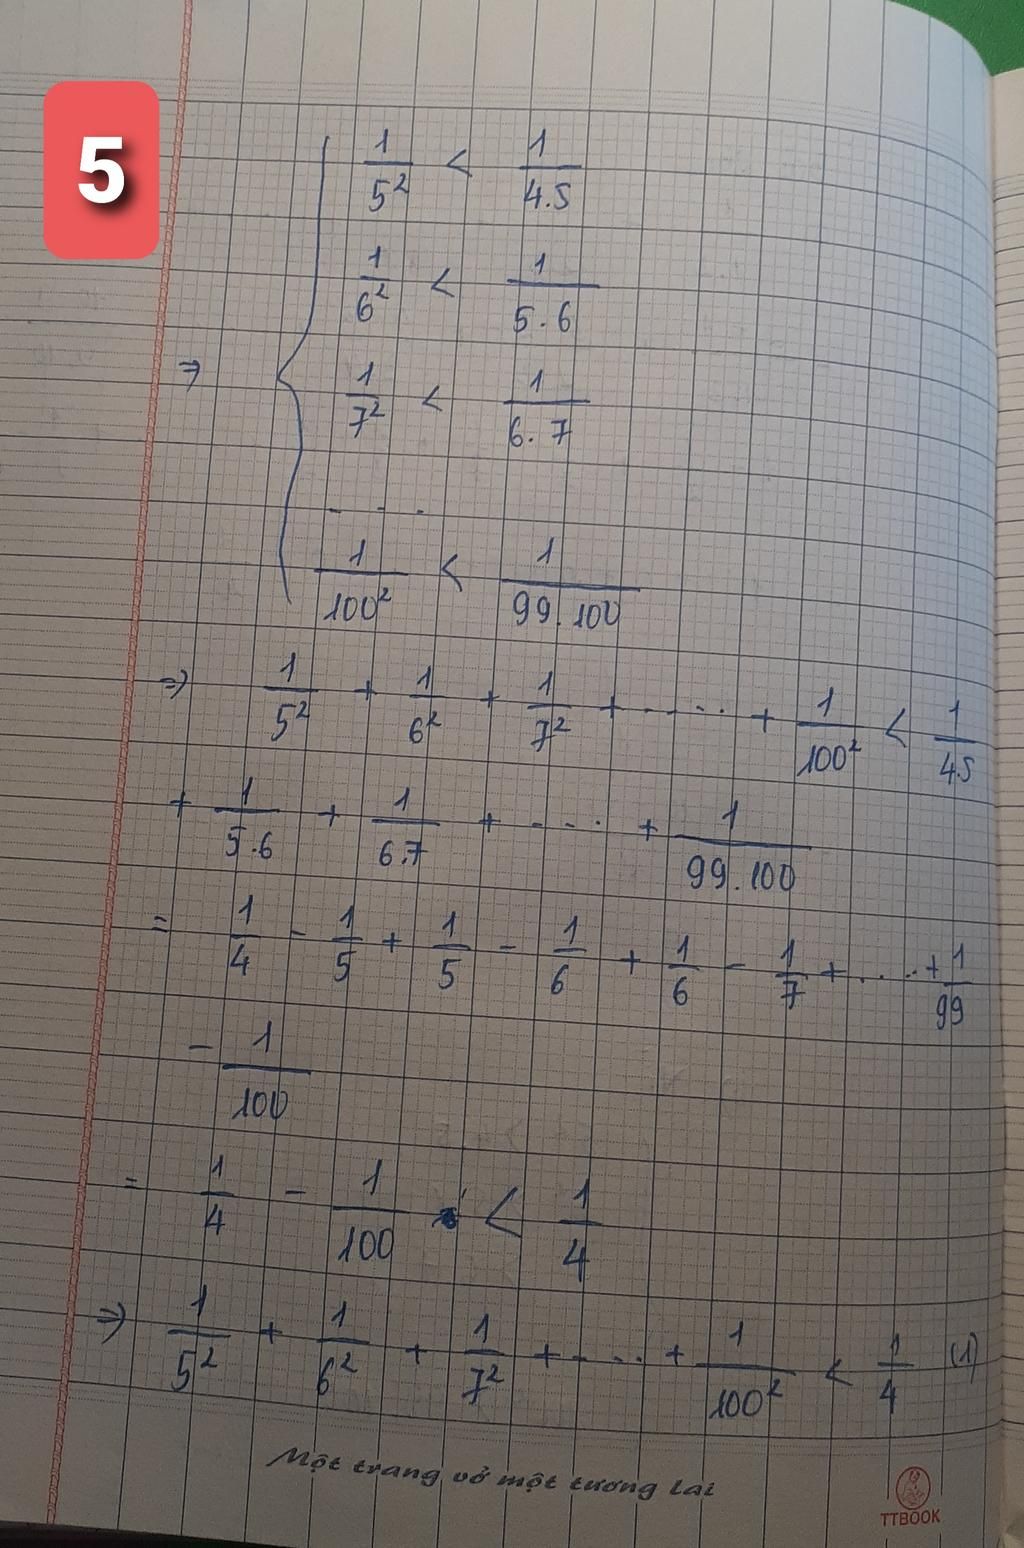 5
1/5² < 1/4.5
1/6² < 1/5.6
⇒ 1/7² < 1/6.7
- - -
1/100² < 1/99.100
⇒ 1/5² + 1/6² + 1/7² + ..... + 1/100² < 1/45
+ 1/5.6 + 1/6.7 + .... + 1/99.100
= 1/4 - 1/5 + 1/5 - 1/6 + 1/6 - 1/7 + .... + 1/99
- 1/100
= 1/4 - 1/100 < 1/4
⇒ 1/5² + 1/6² + 1/7² + .... + 1/100² < 1/4 (1)
Một trang vở một tương lai
TTBOOK